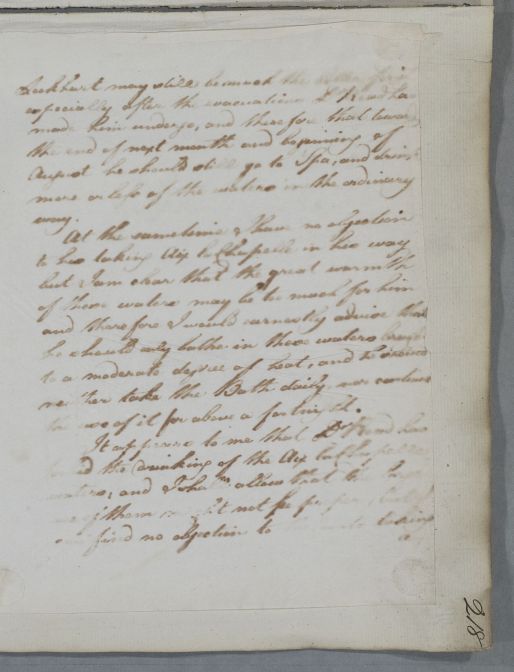 Lockhart may still be much the better for it
especially after the evacuations Dr. Reed has
made him undergo, and therefore that towards
the end of next month and beginning of
August he should still go to Spa, and drink
more or less of the waters in the ordinary
way.
At the same time I have no objection
to his taking Aix la Chapelle in his way
but I am clear that the great warmth
of these waters may be too much for him
and therefore I would earnestly advise that
he should only bathe in these waters brought
to a moderate degree of heat, and he should
neither take the Bath daily nor continue
the use of it for above a fortnight.
It appears to me that Dr. has
the drinking of the Aix la Chapelle
waters, and I shall allow that the
use of them might not be proper, but I
find no objection to taking
a
218